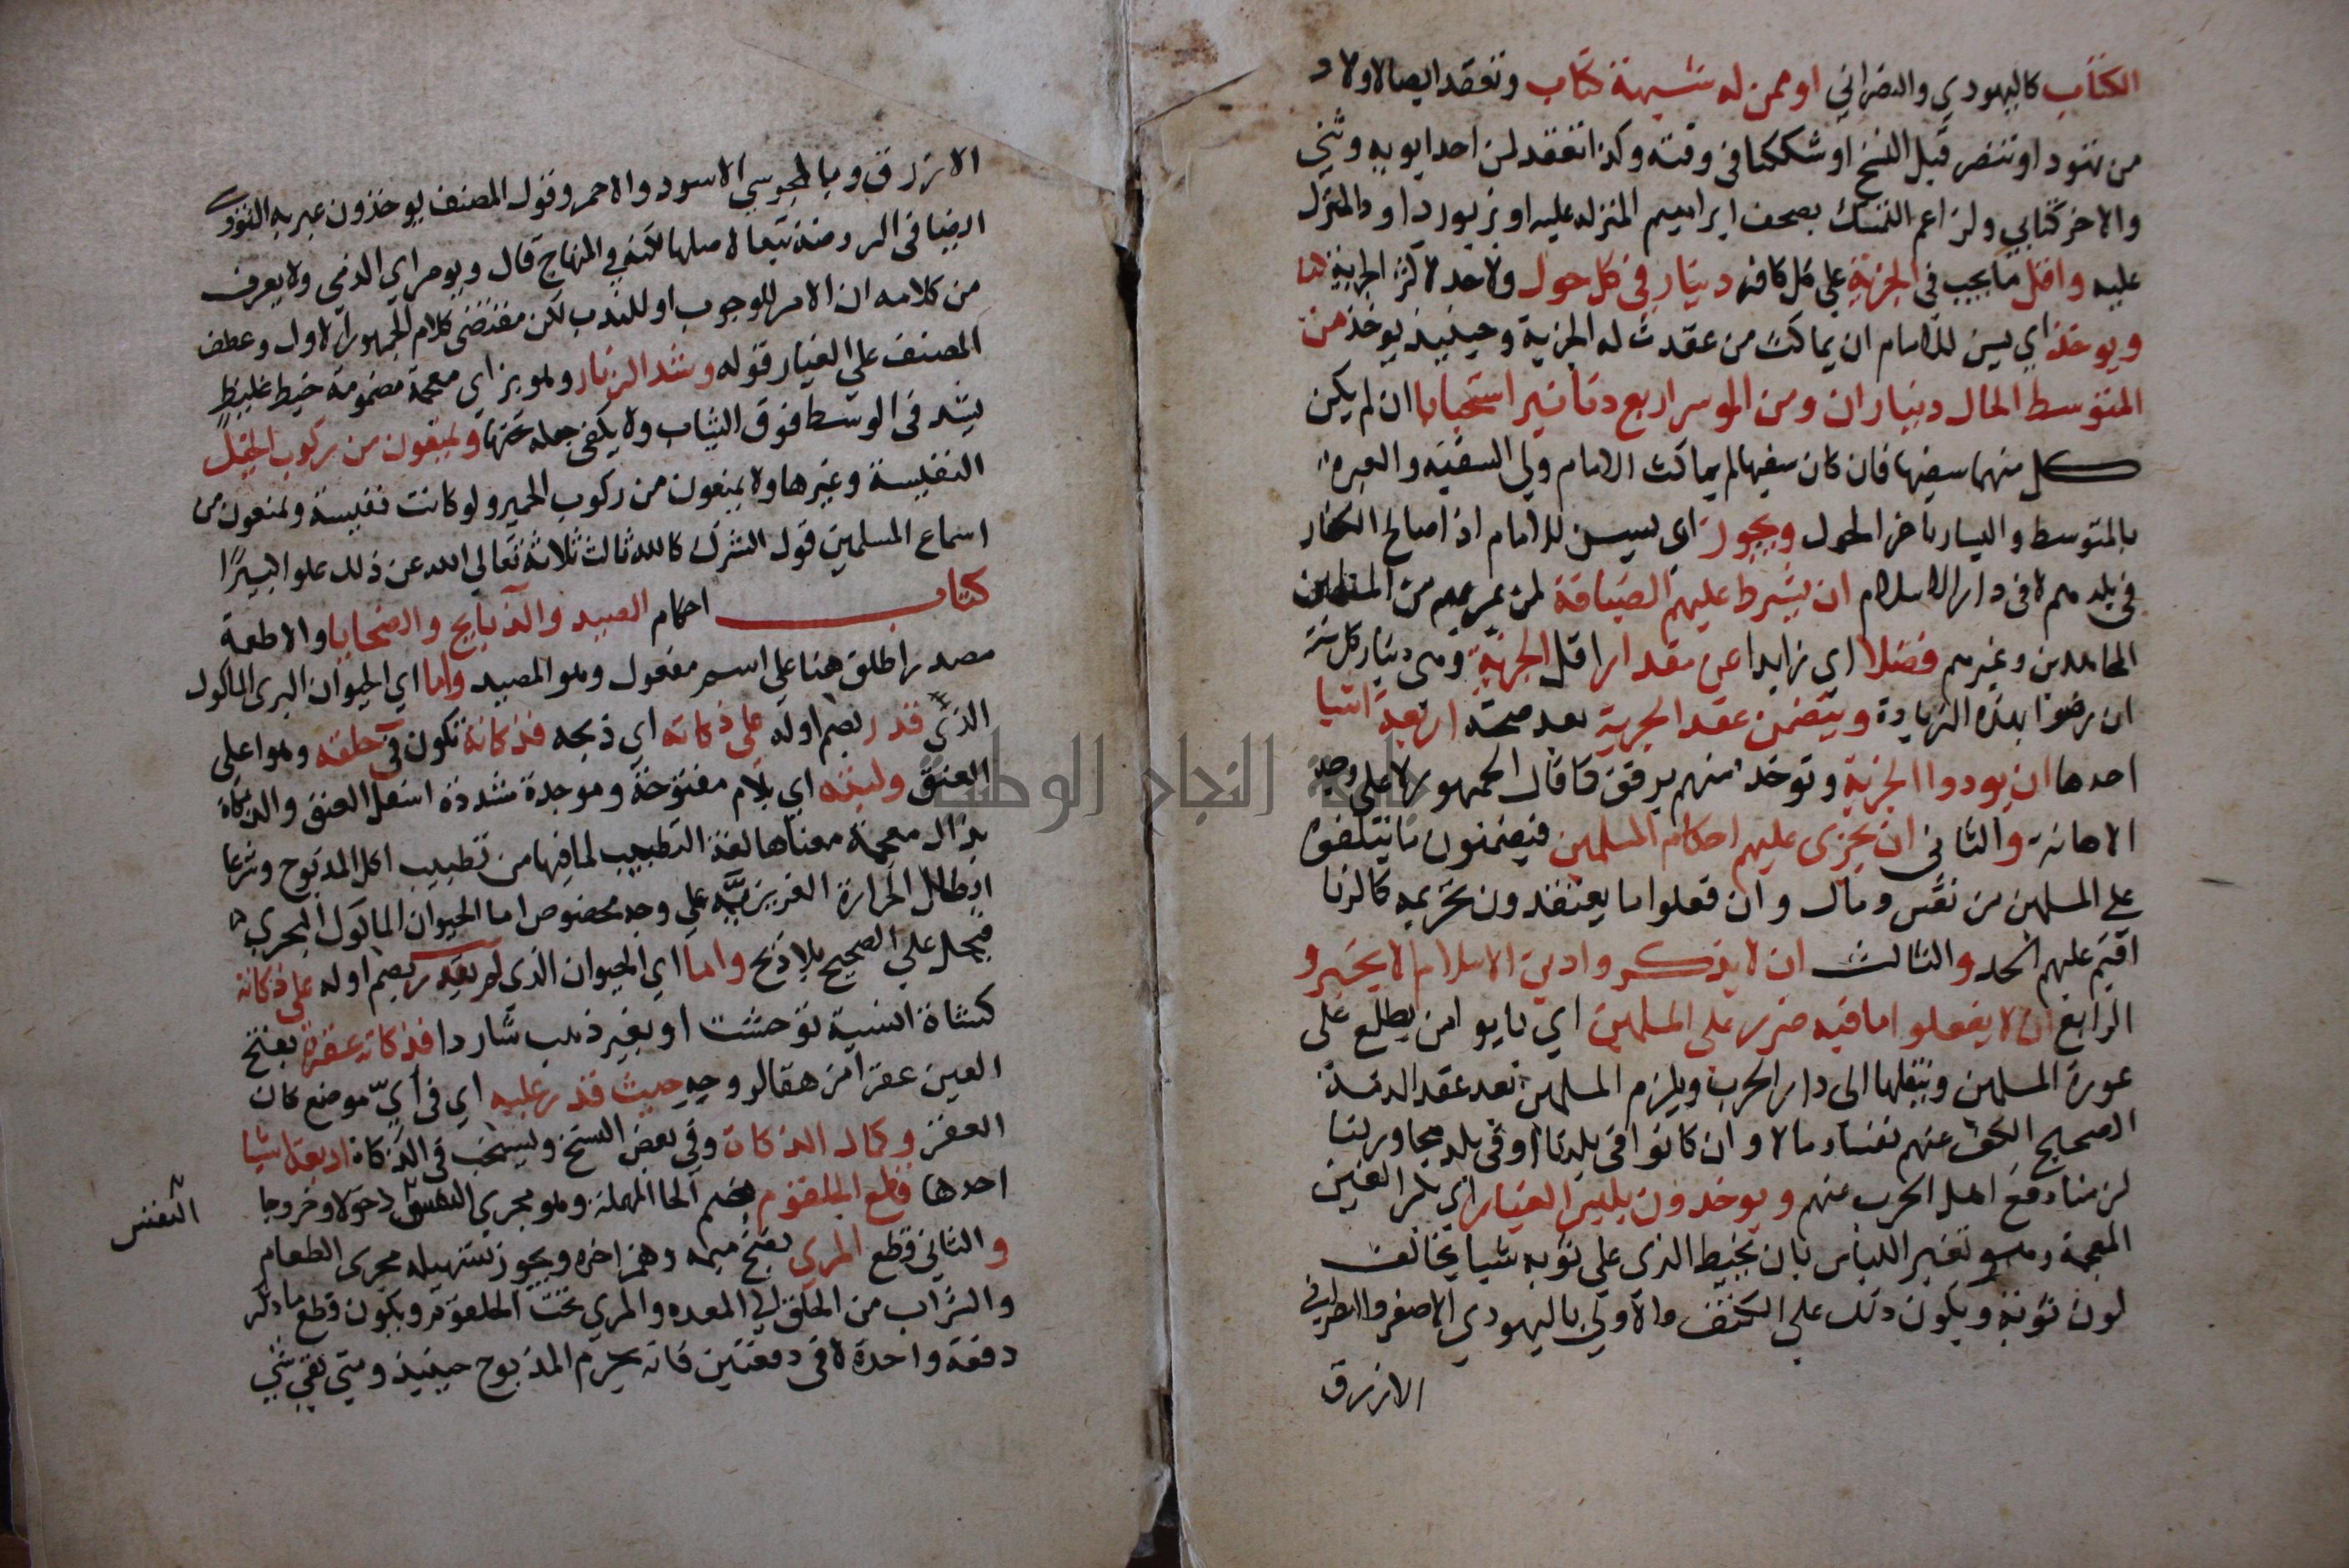 الكتاب كاليهودي والنصراني او ممن له شبهة كتاب وتعقد ايضا لاولاد
من تهود او تنصر قبل النسخ او شككنا في وقته وكذا تعقد لمن احد ابويه وثني
والاخر كتابي ولزاعم التمسك بصحف ابراهيم المنزله عليه او بزبور داود المنزل
عليه واقل ما يجب في الجزية على كل كافر دينار في كل حول ولا حد لاكثر الجزية
ويوخذ اي يسن للامام ان يماكس من عقدت له الجزية وحينيذ يوخذ من
المتوسط الحال ديناران ومن الموسر اربع دنانير استحبابا ان لم يكن
كل منهما سفيها فان كان سفيها لم يماكس الامام ولي السفيه والعبرة
بالمتوسط واليسار باخر الحول ويجوز اي يسن للامام اذا صالح الكفار
في بلدهم لا في دار الاسلام ان يشرط عليهم الضيافة لمن يمر بهم من المسلمين
المجاهدين وغيرهم فضلا اي زايدا عن مقدار اقل الجزية وهي دينار كل سنة
ان رضوا بهذه الزيادة ويتضمن عقد الجزية بعد صحته اربعة اشيا
احدها ان يودوا الجزية وتوخذ منهم برفق كما قال الجمهور لا على وجه
الاهانة والثاني ان تجري عليهم احكام المسلمين فيضمنون ما يتلفونه
على المسلمين من نفس ومال وان فعلوا ما يعتقدون تحريمه كالزنا
اقيم عليهم الحد والثالث ان لا يذكروا دين الاسلام الا بخير و
الرابع ان لا يفعلوا ما فيه ضرر على المسلمين اي بان يووا من يطلع على
عورة المسلمين وينقلها الى دار الحرب ويلزم المسلمين بعد عقد الذمة
الصحيح الكف عنهم نفسا ومالا وان كانوا في بلدنا او في بلد مجاور لنا
لزمنا دفع اهل الحرب عنهم ويوخذون بلبس الغيار اي بكسر الغين
المعجمة وهو تغيير اللباس بان يخيط الذمي على ثوبه شيا يخالف
لون ثوبه ويكون ذلك على الكتف والاولى باليهودي الاصفر والنصراني
الازرق
الازرق وبالمجوسي الاسود والاحمر وقول المصنف يوخذون عبر به النووي
ايضا في الروضة تبعا لاصلها لكنه في المنهاج قال ويومر اي الذمي ولا يعرف
من كلامه ان الامر للوجوب او للندب لكن مقتضى كلام الجمهور الاول وعطف
المصنف على الغيار قوله وشد الزنار وهو بزاي معجمة مضمومة خيط غليظ
يشد في الوسط فوق الثياب ولا يكفي جعله تحتها ويمنعون من ركوب الخيل
النفيسة وغيرها ولا يمنعون من ركوب الحمير ولو كانت نفيسة ويمنعون من
اسماع المسلمين قول الشرك كالله ثالث ثلاثة تعالى الله عن ذلك علوا كبيرًا
كتاب احكام الصيد والذبايح والضحايا والاطعمة
مصدر اطلق هنا على اسم مفعول وهو المصيد واما اي الحيوان البري الماكول
الذي قدر بضم اوله على ذكاته اي ذبحه فذكاته تكون في حلقه وهو اعلى
العنق ولبته اي بلام مفتوحة وموحدة مشددة اسفل العنق والذكاة
بذال معجمة معناها لغة التطييب لما فيها من تطييب اكل المذبوح وشرعا
ابطال الحرارة الغريزيّه على وجه مخصوص اما الحيوان الماكول البحري
فيحل على الصحيح بلا ذبح واما اي الحيوان الذي لم يقدر بضم اوله على ذكاته
كشاة انسية توحشت او بعير ذهب شاردا فذكاته عقره بفتح
العين عقرا مزهقا للروح حيث قدر عليه اي في ايّ موضع كان
العقر وكمال الذكاة وفي بعض النسخ ويستحب في الذكاة اربعة اشيا
احدها قطع الحلقوم بضم الحا المهملة وهو مجرى النفس دخولا وخروجا
التنفس
والثاني قطع المري بفتح ميمه وهمز اخره ويجوز تسهيله مجرى الطعام
والشراب من الحلق الى المعده والمري تحت الحلقوم ويكون قطع ما ذكر
دفعة واحدة لا في دفعتين فانه يحرم المذبوح حينيذ ومتى بقي شي
جامعة النجاح الوطنية